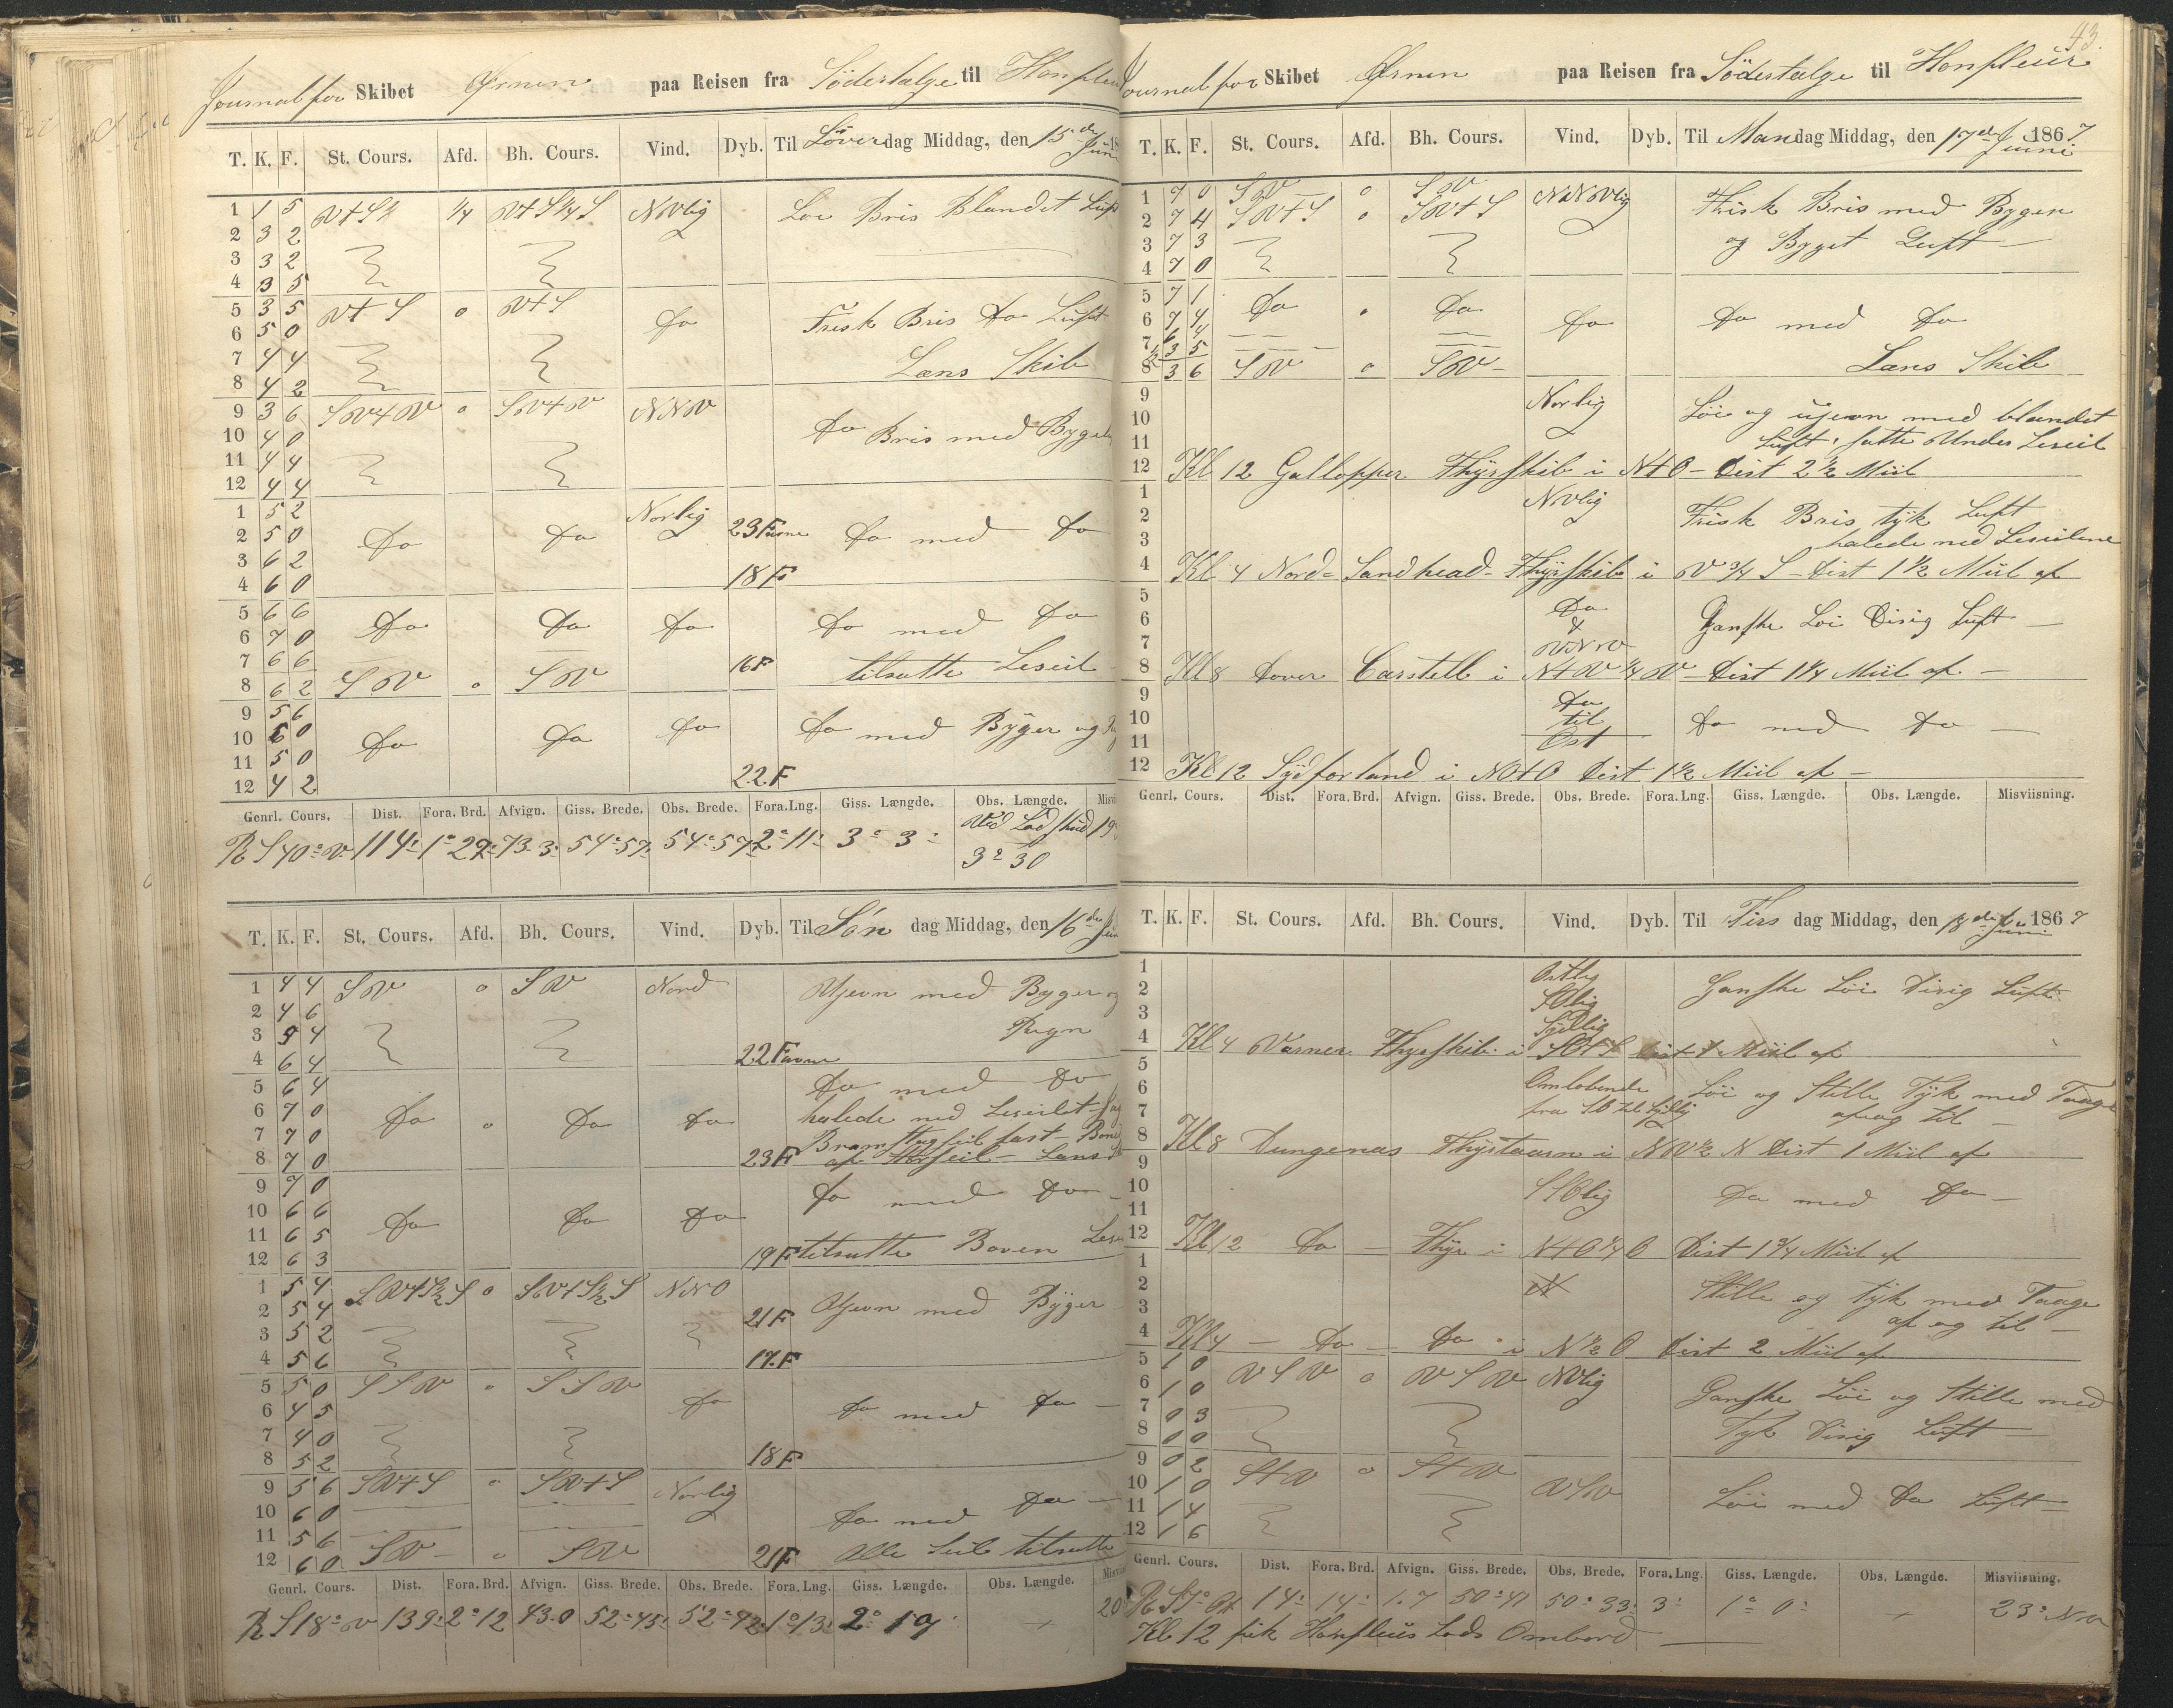 Journal for Skibet Ørnen paa Reisen fra Södertelge til Honfleur
T. K. F. St. Cours. Afd. Bh. Cours. Vind. Dyb. Til Löverdag Middag, den 15de Juni 18
1 1 5 Vt S¼ ¼ Vt S¼ S NVlig Løi Bris Blandet Luft
2 3 2
3 3 2
4 3 5
5 3 5 Vt S 0 Vt S do Frisk Bris do Luft
6 5 0
7 4 4 Læns Skib
8 4 2
9 3 6 SVtV 0 SVtV NNV do Bris med Byget
10 4 0
11 4 4
12 4 4
1 5 2 Norlig
2 5 0 do do 23 Favne do med do
3 6 2
4 6 0 18 F
5 6 6 do do do do med do
6 7 0
7 6 6 16 F tilsatte Leseil
8 6 2 SV 0 SV
9 5 6 do do do do med Byger og
10 6 0
11 5 0
12 4 2 22 F
Genrl. Cours. Dist. Fora. Brd. Afvign. Giss. Brede. Obs. Brede. Fora. Lng. Giss. Længde. Obs. Længde.
R S 40° V 114' 1° 29' 73.3 54° 57' 54° 57' 2° 11' 3° 3' Ved Lodskud 19
3° 30
T. K. F. St. Cours. Afd. Bh. Cours. Vind. Dyb. Til Søndag Middag, den 16de Juni
1 4 4 SV 0 SV Nord Ujevn med Byger og
2 4 6
3 5 4 Regn
4 6 4 22 Favne
5 6 4 do med do
6 7 0 do 0 do do halede ned Leseilet
7 7 0 Bramstagseil fast
8 7 0 23 F af Storseil Læns
9 7 0 do med do
10 6 6 do do do
11 6 5
12 6 3 19 F tilsatte Boven Lese
1 5 4 SVtS½S 0 SVtS½S NNO
2 5 4 21 F Ujevn med Byger
3 5 2
4 5 6 17 F
5 5 0 SSV 0 SSV do
6 4 5 do med do
7 4 0
8 5 2 18 F
9 5 6 SVtS 0 SVtS Norlig
10 6 0 do med do
11 5 6
12 6 0 SV 0 SV 21 F Alle Seil tilsatte
Genrl. Cours. Dist. Fora. Brd. Afvign. Giss. Brede. Obs. Brede. Fora. Lng. Giss. Længde. Obs. Længde.
R S 18° V 139' 2° 12 43.0 52° 45' 52° 42' 1° 13' 2° 19' 20
43.
Journal for Skibet Ørnen paa Reisen fra Södertelge til Honfleur
T. K. F. St. Cours. Afd. Bh. Cours. Vind. Dyb. Til Mandag Middag, den 17de Juni 1867
1 7 0 SV 0 SV NNVlig Frisk Bris med Byger
2 7 4 SVtS 0 SVtS
3 7 3 og Byget Luft
4 7 0
5 7 1 do do
6 7 4 do do med do
7 6 4
½ 3 5
8 3 6 SV 0 SV Læns Skib
9 Norlig Løi og ujevn med blandet
10
11 Luft, satte Under Leseil
12 Kl 12 Gallopper Fhyrskib i NtO Dist 2½ Miil
1 NVlig Frisk Bris tyk Luft
2
3 halede ned Leseilene
4 Kl 4 Nord-Sandhead-Fhyrskib i V¾S Dist 1½ Miil af
5 do
6 & Ganske Løi Disig Luft
7 VNV
8 Kl 8 Dover Carstell i NtV¼V Dist 1¼ Miil af
9 do
10 til do med do
11 Ost
12 Kl 12 Sydforland i NOtO Dist 1½ Miil af
Genrl. Cours. Dist. Fora. Brd. Afvign. Giss. Brede. Obs. Brede. Fora. Lng. Giss. Længde. Obs. Længde. Misviisning.
T. K. F. St. Cours. Afd. Bh. Cours. Vind. Dyb. Til Tirsdag Middag, den 18de Juni 1867
1 Ostlig Ganske Løi Disig Luft
2 SOlig
3 Sydlig
4 Kl 4 Varner Fhyrskib i SOtS Dist 1 Miil af
5
6 Omløbende Løi og Stille Tyk med Taage
7 fra SO til Sydlig af og til
8 Kl 8 Dungenas Fhyrtaarn i NV½N Dist 1 Miil af
9
10 SSOlig do med do
11
12 Kl 12 do Fhyr i NtO¼O Dist 1¾ Miil af
1
2 N Stille og tyk med Taage
3 af og til
4 Kl 4 do do i N½O Dist 2 Miil af
5 1 0 VSV 0 VSV NVlig
6 1 0 Ganske Løi og Stille med
7 0 3 Tyk Disig Luft
8 0 0
9 0 2 StV 0 StV
10 1 0 VSV Løi med do Luft
11 1 4
12 1 6
Genrl. Cours. Dist. Fora. Brd. Afvign. Giss. Brede. Obs. Brede. Fora. Lng. Giss. Længde. Obs. Længde. Misviisning.
R S 7° Ost 14' 14' 1.7 50° 41 50° 33' 3' 1° 0' 23° NV
Kl 12 fik Honfleurs Lods Ombord